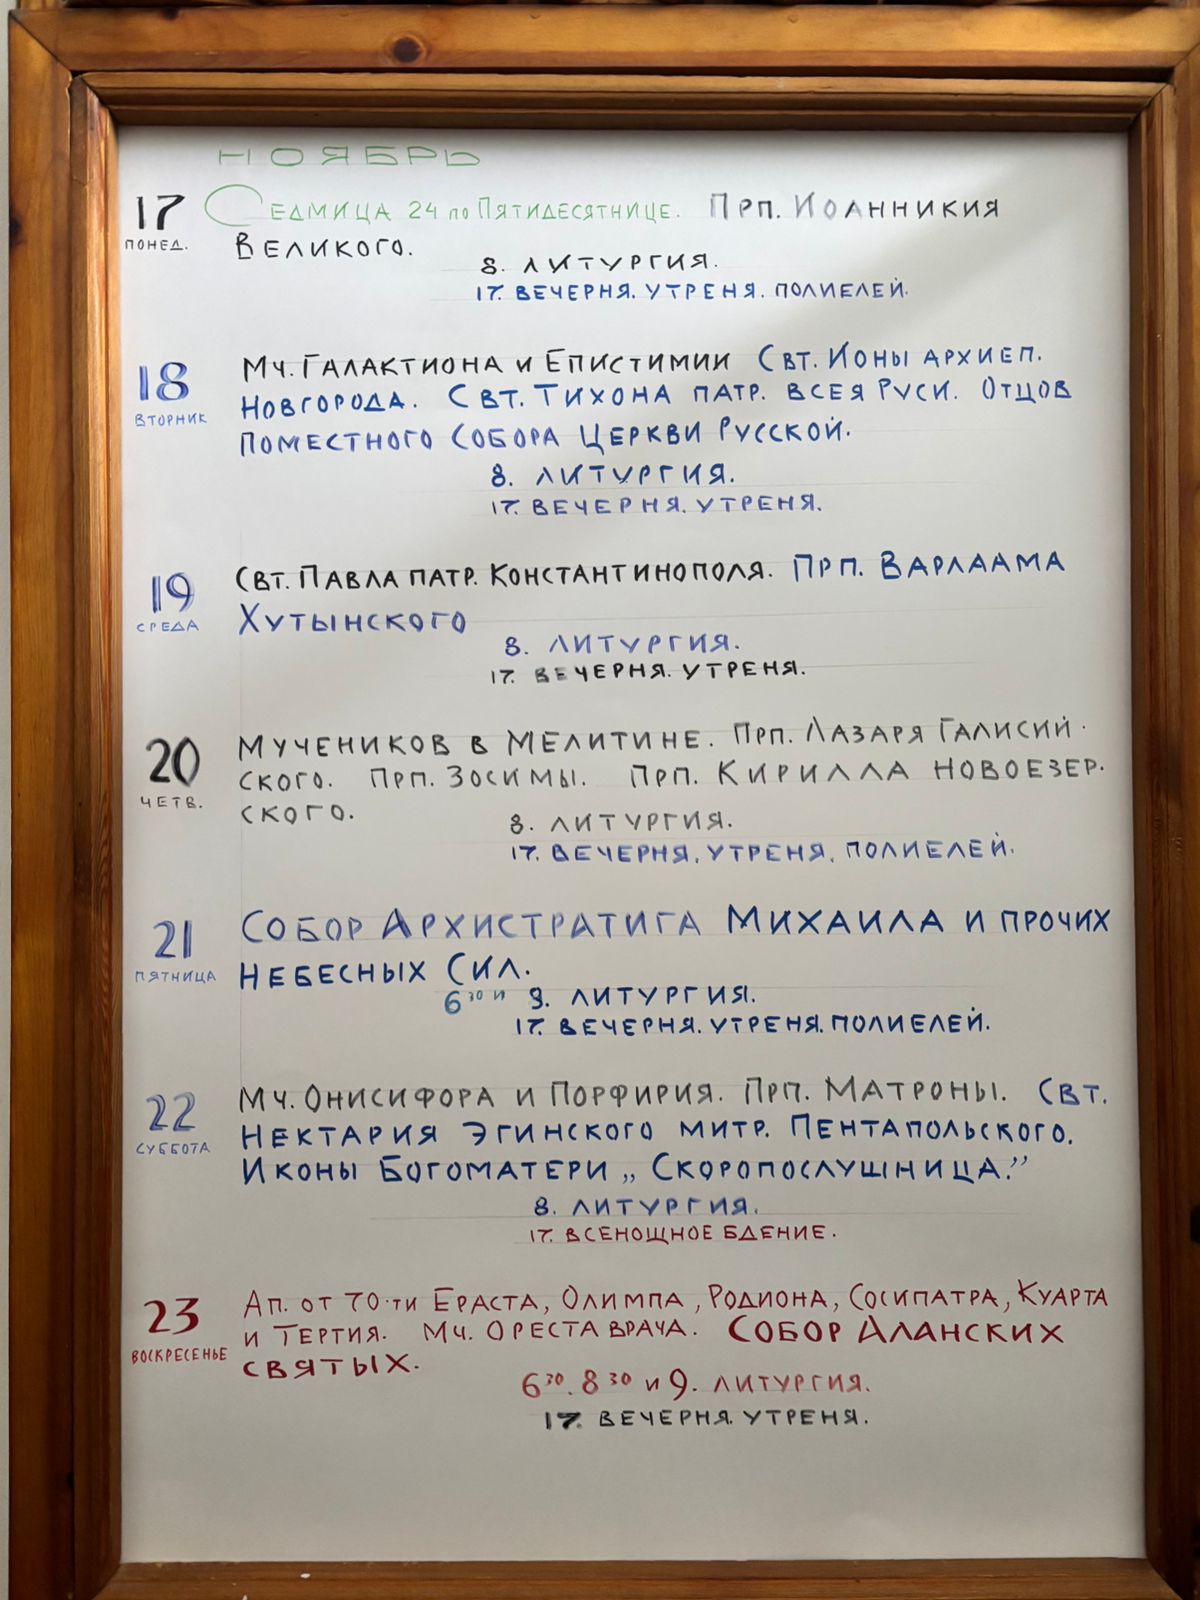 НОЯБРЬ
17 СЕДМИЦА 24 ПО ПЯТИДЕСЯТНИЦЕ. ПРП. ИОАННИКИЯ
ПОНЕД. ВЕЛИКОГО.
8. ЛИТУРГИЯ.
17. ВЕЧЕРНЯ. УТРЕНЯ. ПОЛИЕЛЕЙ.
18 МЧ. ГАЛАКТИОНА И ЕПИСТИМИИ СВТ. ИОНЫ АРХИЕП.
ВТОРНИК НОВГОРОДА. СВТ. ТИХОНА ПАТР. ВСЕЯ РУСИ. ОТЦОВ
ПОМЕСТНОГО СОБОРА ЦЕРКВИ РУССКОЙ.
8. ЛИТУРГИЯ.
17. ВЕЧЕРНЯ. УТРЕНЯ.
19 СВТ. ПАВЛА ПАТР. КОНСТАНТИНОПОЛЯ. ПРП. ВАРЛААМА
СРЕДА ХУТЫНСКОГО
8. ЛИТУРГИЯ.
17. ВЕЧЕРНЯ. УТРЕНЯ.
20 МУЧЕНИКОВ В МЕЛИТИНЕ. ПРП. ЛАЗАРЯ ГАЛИСИЙ-
ЧЕТВ. СКОГО. ПРП. ЗОСИМЫ. ПРП. КИРИЛЛА НОВОЕЗЕР-
СКОГО.
8. ЛИТУРГИЯ.
17. ВЕЧЕРНЯ. УТРЕНЯ. ПОЛИЕЛЕЙ.
21 СОБОР АРХИСТРАТИГА МИХАИЛА И ПРОЧИХ
ПЯТНИЦА НЕБЕСНЫХ СИЛ.
6 30 И 9. ЛИТУРГИЯ.
17. ВЕЧЕРНЯ. УТРЕНЯ. ПОЛИЕЛЕЙ.
22 МЧ. ОНИСИФОРА И ПОРФИРИЯ. ПРП. МАТРОНЫ. СВТ.
СУББОТА НЕКТАРИЯ ЭГИНСКОГО МИТР. ПЕНТАПОЛЬСКОГО.
ИКОНЫ БОГОМАТЕРИ „СКОРОПОСЛУШНИЦА.”
8. ЛИТУРГИЯ.
17. ВСЕНОЩНОЕ БДЕНИЕ.
23 АП. ОТ 70-ТИ ЕРАСТА, ОЛИМПА, РОДИОНА, СОСИПАТРА, КУАРТА
ВОСКРЕСЕНЬЕ И ТЕРТИЯ. МЧ. ОРЕСТА ВРАЧА. СОБОР АЛАНСКИХ
СВЯТЫХ.
6 30. 8 30 И 9. ЛИТУРГИЯ.
17. ВЕЧЕРНЯ. УТРЕНЯ.